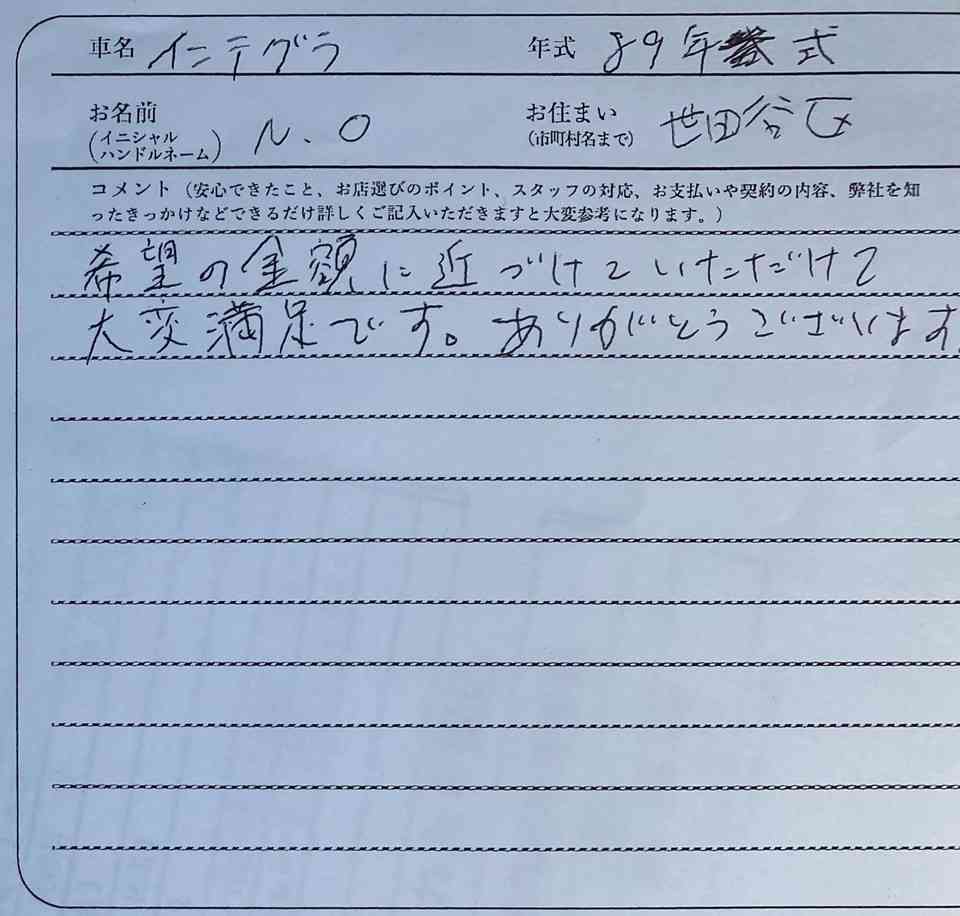 車名 インテグラ 年式 89年式
お名前 (イニシャル ハンドルネーム) N.O お住まい (市町村名まで) 世田谷区
コメント（安心できたこと、お店選びのポイント、スタッフの対応、お支払いや契約の内容、弊社を知
ったきっかけなどできるだけ詳しくご記入いただきますと大変参考になります。）
希望の金額に近づけていただけて
大変満足です。ありがとうございます